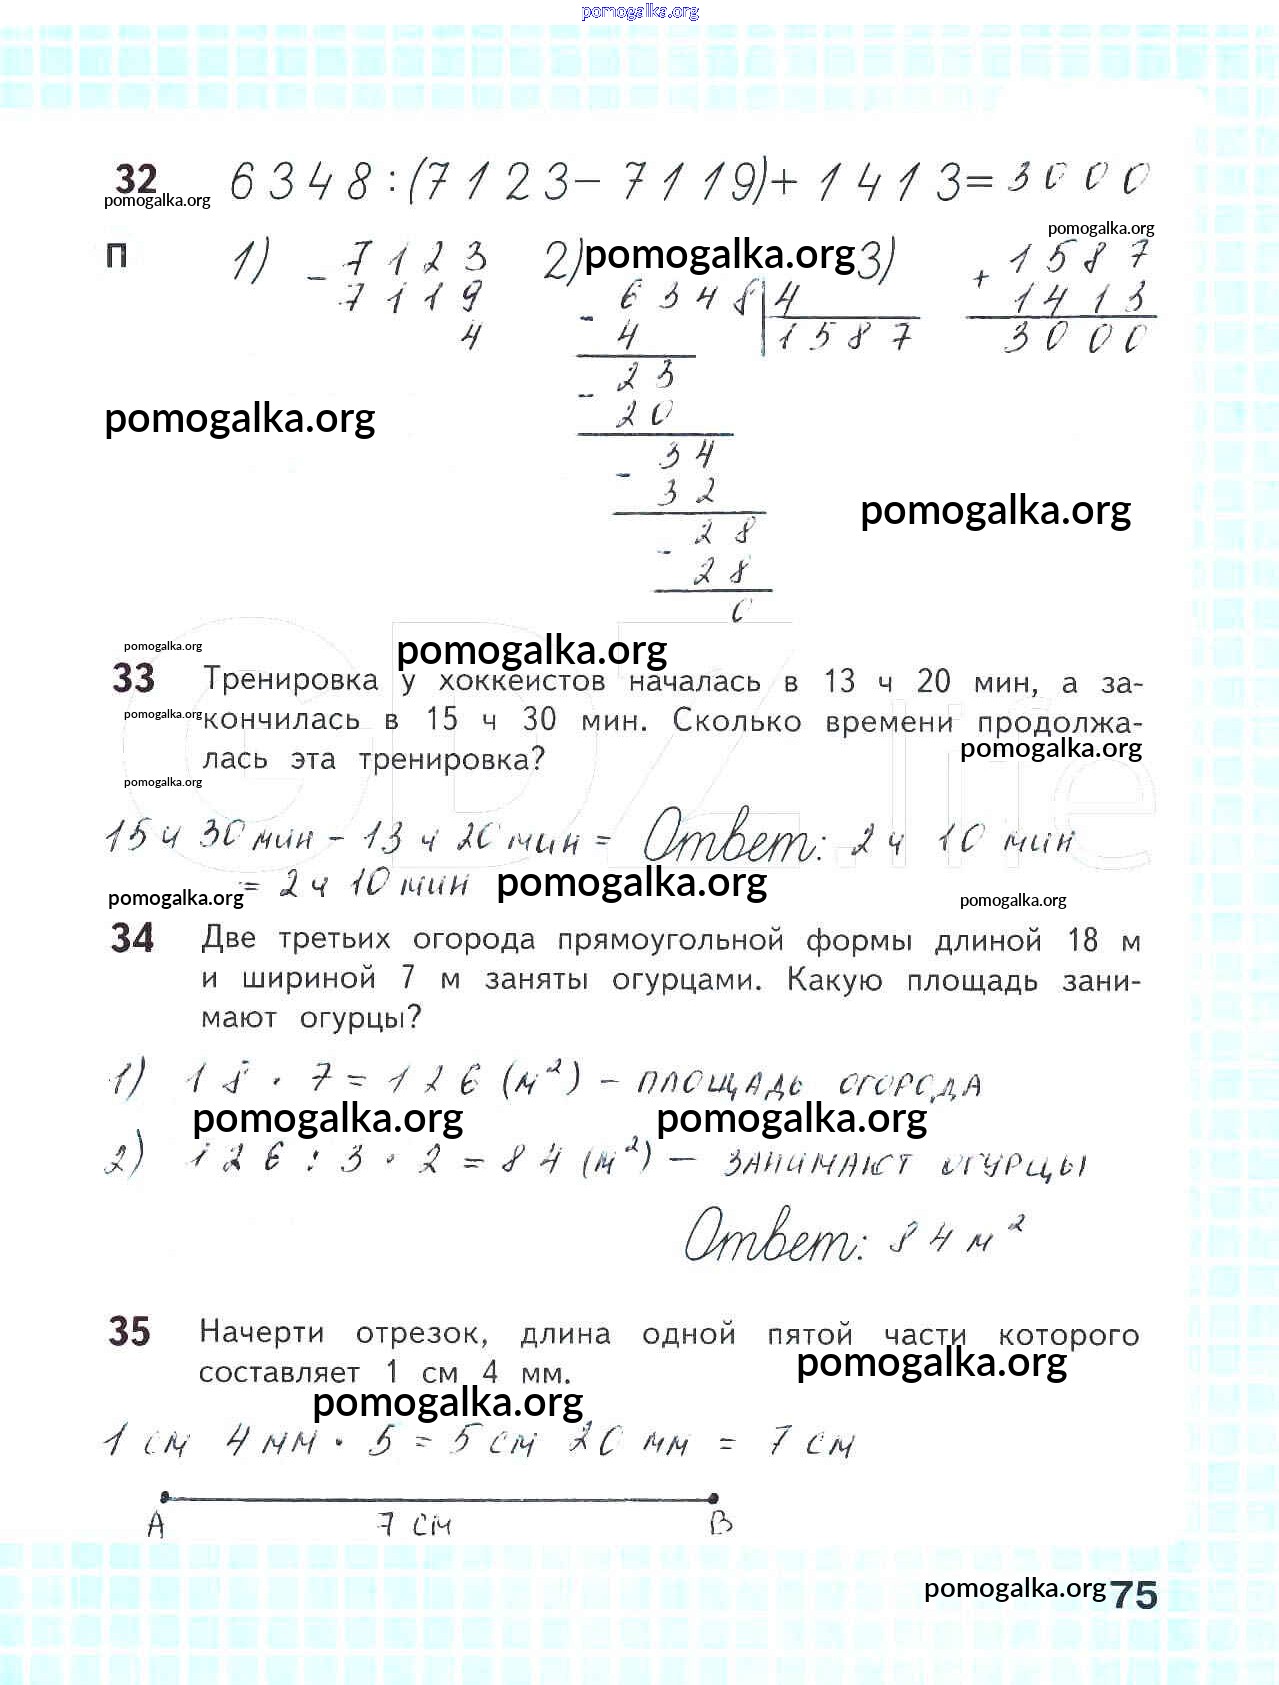 pomogalka.org
32 6348:(7123-7119)+1413=3000
pomogalka.org
pomogalka.org
П 1) 7123 2) pomogalka.org 3) 1587
- 7119 - 6348 4 + 1413
4 4 1587 3000
23
- 20
pomogalka.org
34
- 32
pomogalka.org
28
- 28
0
pomogalka.org pomogalka.org
33 Тренировка у хоккеистов началась в 13 ч 20 мин, а за-
pomogalka.org кончилась в 15 ч 30 мин. Сколько времени продолжа-
лась эта тренировка? pomogalka.org
pomogalka.org
15 ч 30 мин - 13 ч 20 мин = Ответ: 2 ч 10 мин
= 2 ч 10 мин pomogalka.org
pomogalka.org pomogalka.org
34 Две третьих огорода прямоугольной формы длиной 18 м
и шириной 7 м заняты огурцами. Какую площадь зани-
мают огурцы?
1) 18 · 7 = 126 (м²) - площадь огорода
pomogalka.org pomogalka.org
2) 126 : 3 · 2 = 84 (м²) - занимают огурцы
Ответ: 84 м²
35 Начерти отрезок, длина одной пятой части которого
pomogalka.org
составляет 1 см 4 мм.
pomogalka.org
1 см 4 мм · 5 = 5 см 20 мм = 7 см
А 7 см В
pomogalka.org 75
GDZ.life